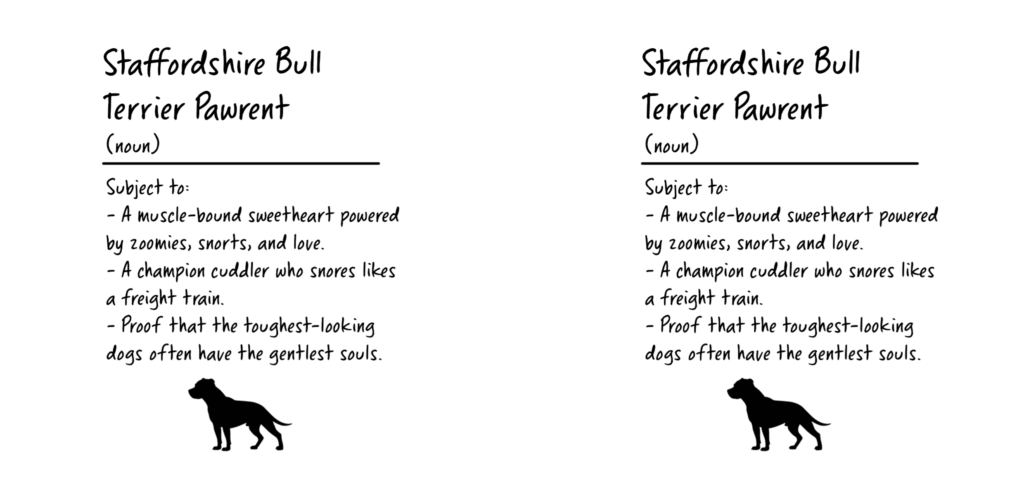 Staffordshire Bull
Terrier Pawrent
(noun)
Subject to:
- A muscle-bound sweetheart powered
by zoomies, snorts, and love.
- A champion cuddler who snores likes
a freight train.
- Proof that the toughest-looking
dogs often have the gentlest souls.
Staffordshire Bull
Terrier Pawrent
(noun)
Subject to:
- A muscle-bound sweetheart powered
by zoomies, snorts, and love.
- A champion cuddler who snores likes
a freight train.
- Proof that the toughest-looking
dogs often have the gentlest souls.